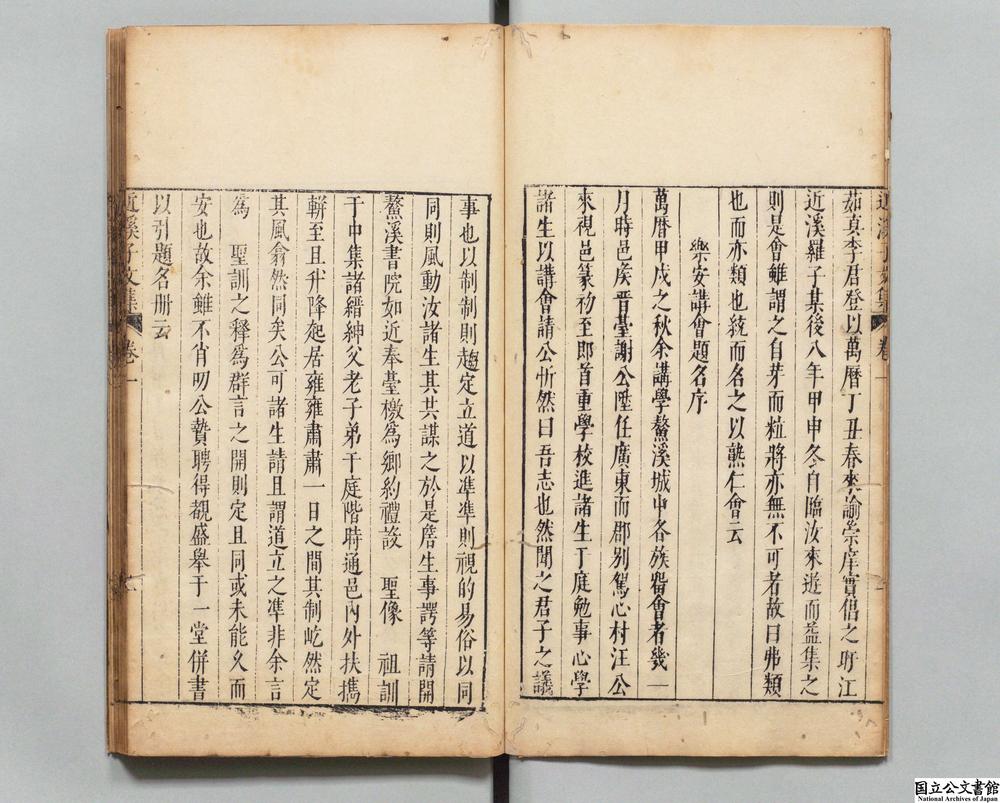 茹真李君登以萬曆丁丑春來諭崇庠實倡之盱江
近溪羅子某後八年甲申冬自臨汝來遊而益集之
則是會雖謂之自芽而粒將亦無不可者故曰弗類
也而亦類也統而名之以熟仁會云
樂安講會題名序
萬曆甲戌之秋余講學鰲溪城中各族畱會者幾一
月時邑矦晋臺謝公陞任廣東而郡别駕心村汪公
來視邑篆初至即首重學校進諸生于庭勉事心學
諸生以講會請公忻然曰吾志也然聞之君子之議
近溪子文集 卷一
事也以制制則趨定立道以準準則視的易俗以同
同則風動汝諸生其共謀之於是詹生事諤等請開
鰲溪書院如近奉臺檄為鄉約禮設 聖像 祖訓
于中集諸縉紳父老子弟干庭階時通邑內外扶攜
輧至且升降起居雍雍肅肅一日之間其制屹然定
其風翕然同矣公可諸生請且謂道立之準非余言
為 聖訓之釋為群言之開則定且同或未能久而
安也故余雖不肖明公贄聘得覩盛舉于一堂併書
以引題名册云
近溪子文集 卷一
国立公文書館
National Archives of Japan